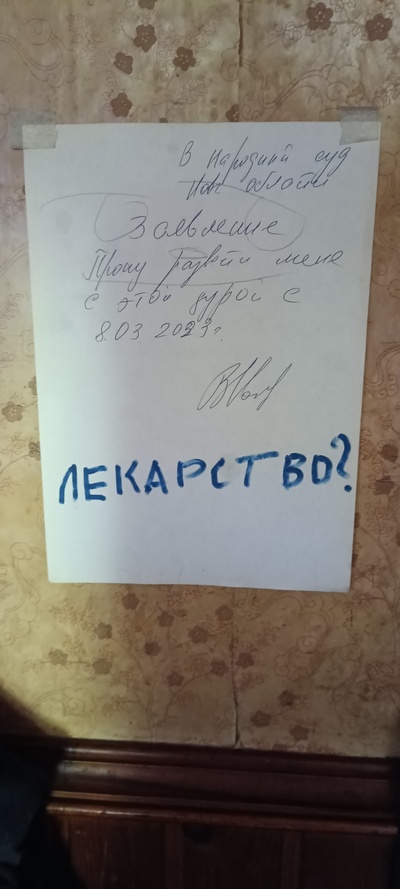 В Народный суд
области
Заявление
Прошу развести меня
с этой дурой с
8.03 2023г.
ЛЕКАРСТВО?